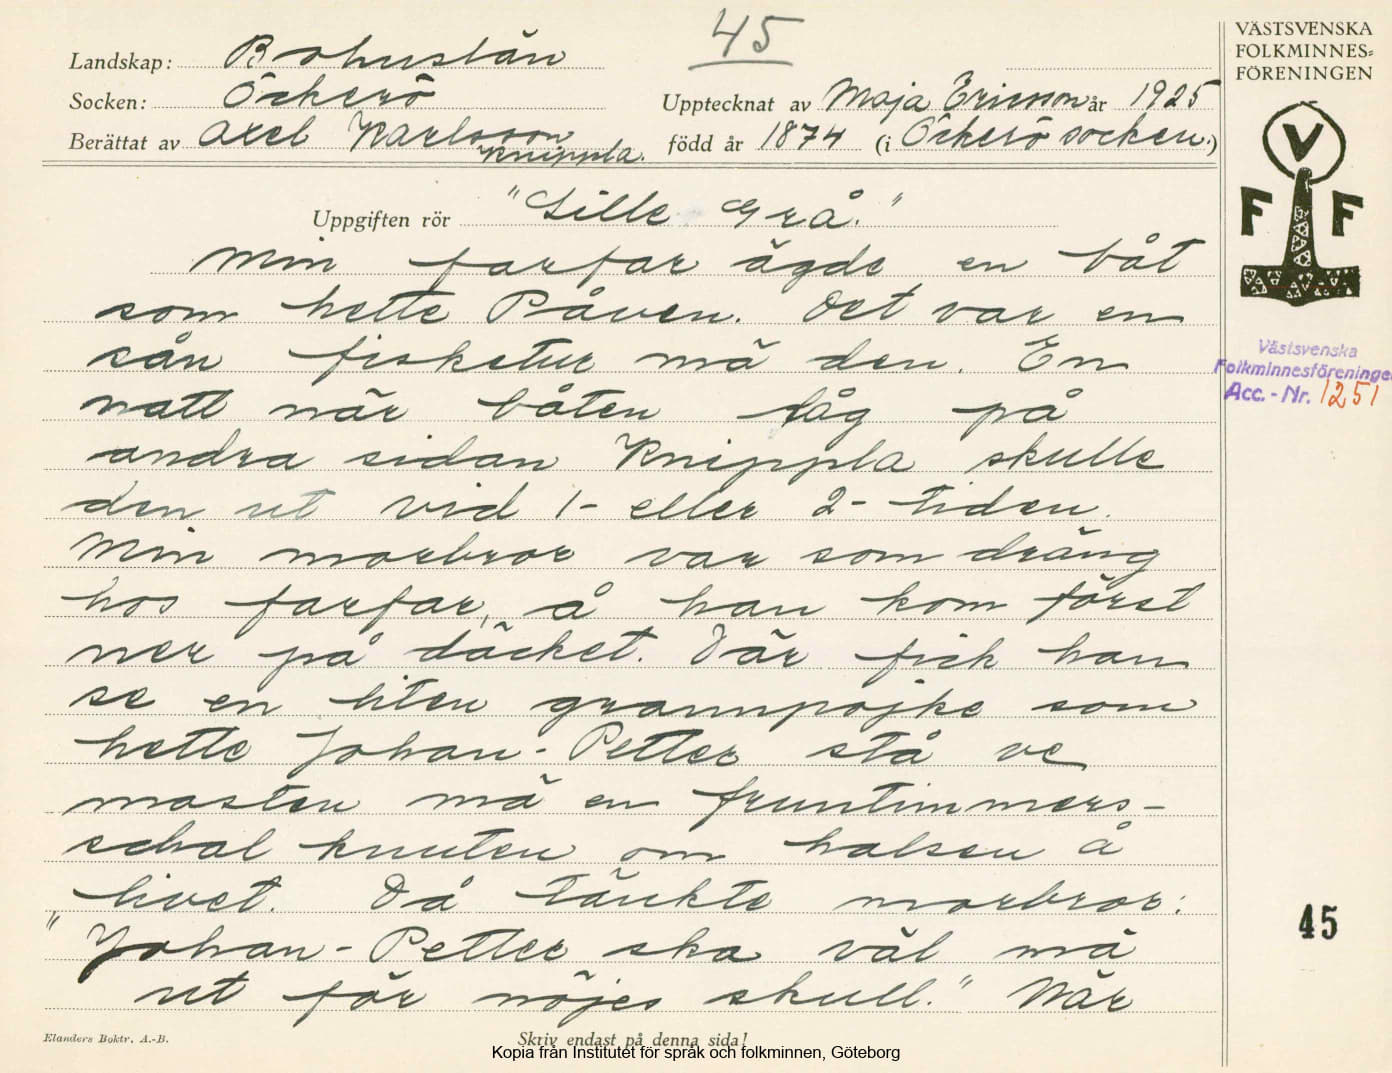 45
VÄSTSVENSKA
FOLKMINNES=
FÖRENINGEN
Landskap: Bohuslän
Socken: Öckerö
Upptecknat av Maja Ericsson år 1925
Berättat av Axel Karlsson
Knippla.
född år 1874 (i Öckerö socken.)
V
F F
Uppgiften rör "Lille Grå."
Min farfar ägde en båt
som hette Påven. Det var en
sån fisketur mä den. En
natt när båten låg på
andra sidan Knippla skulle
den ut vid 1- eller 2- tiden.
Min morbror var som dräng
hos farfar, å han kom först
ner på däcket. Där fick han
se en liten grannpojke som
hette Johan-Petter stå ve
masten mä en fruntimmers-
schal knuten om halsen å
livet. Då tänkte morbror:
"Johan-Petter ska väl mä
ut för nöjes skull." När
Västsvenska
Folkminnesföreningen
Acc.-Nr. 1251
45
Elanders Boktr. A.-B.
Skriv endast på denna sida!
Kopia från Institutet för språk och folkminnen, Göteborg